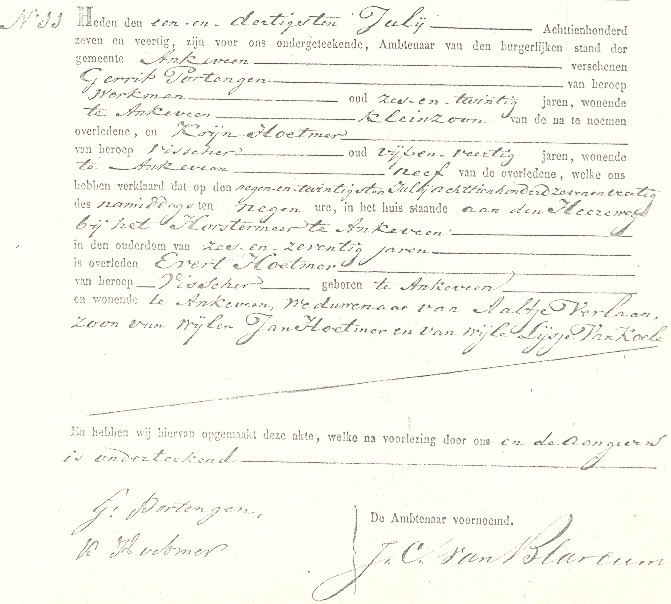 No 33 Heden den een-en-dertigsten July Achttienhonderd
zeven en veertig, zijn voor ons ondergeteekende, Ambtenaar van den burgerlijken stand der
gemeente Ankeveen verschenen
Gerrit Portengen van beroep
Werkman oud zes-en-twintig jaren, wonende
te Ankeveen kleinzoon van de na te noemen
overledene, en Krijn Hoetmer
van beroep Visscher oud vijf-en-veertig jaren, wonende
te Ankeveen neef van de overledene, welke ons
hebben verklaard dat op den negen-en-twintigsten July achttienhonderd zeven en veertig
des namiddags ten negen ure, in het huis staande aan den Heereweg
bij het Horstermeer te Ankeveen
in den ouderdom van zes-en-zeventig jaren
is overleden Evert Hoetmer
van beroep Visscher geboren te Ankeveen
en wonende te Ankeveen, Weduwenaar van Aaltje Verlaan,
zoon van wijlen Jan Hoetmer en van wijle Lijsje Van
En hebben wij hiervan opgemaakt deze akte, welke na voorlezing door ons en de aangevers
is onderteekend
G: Portengen,
K Hoetmer
De Ambtenaar voornoemd.
J. C. van Blarcum